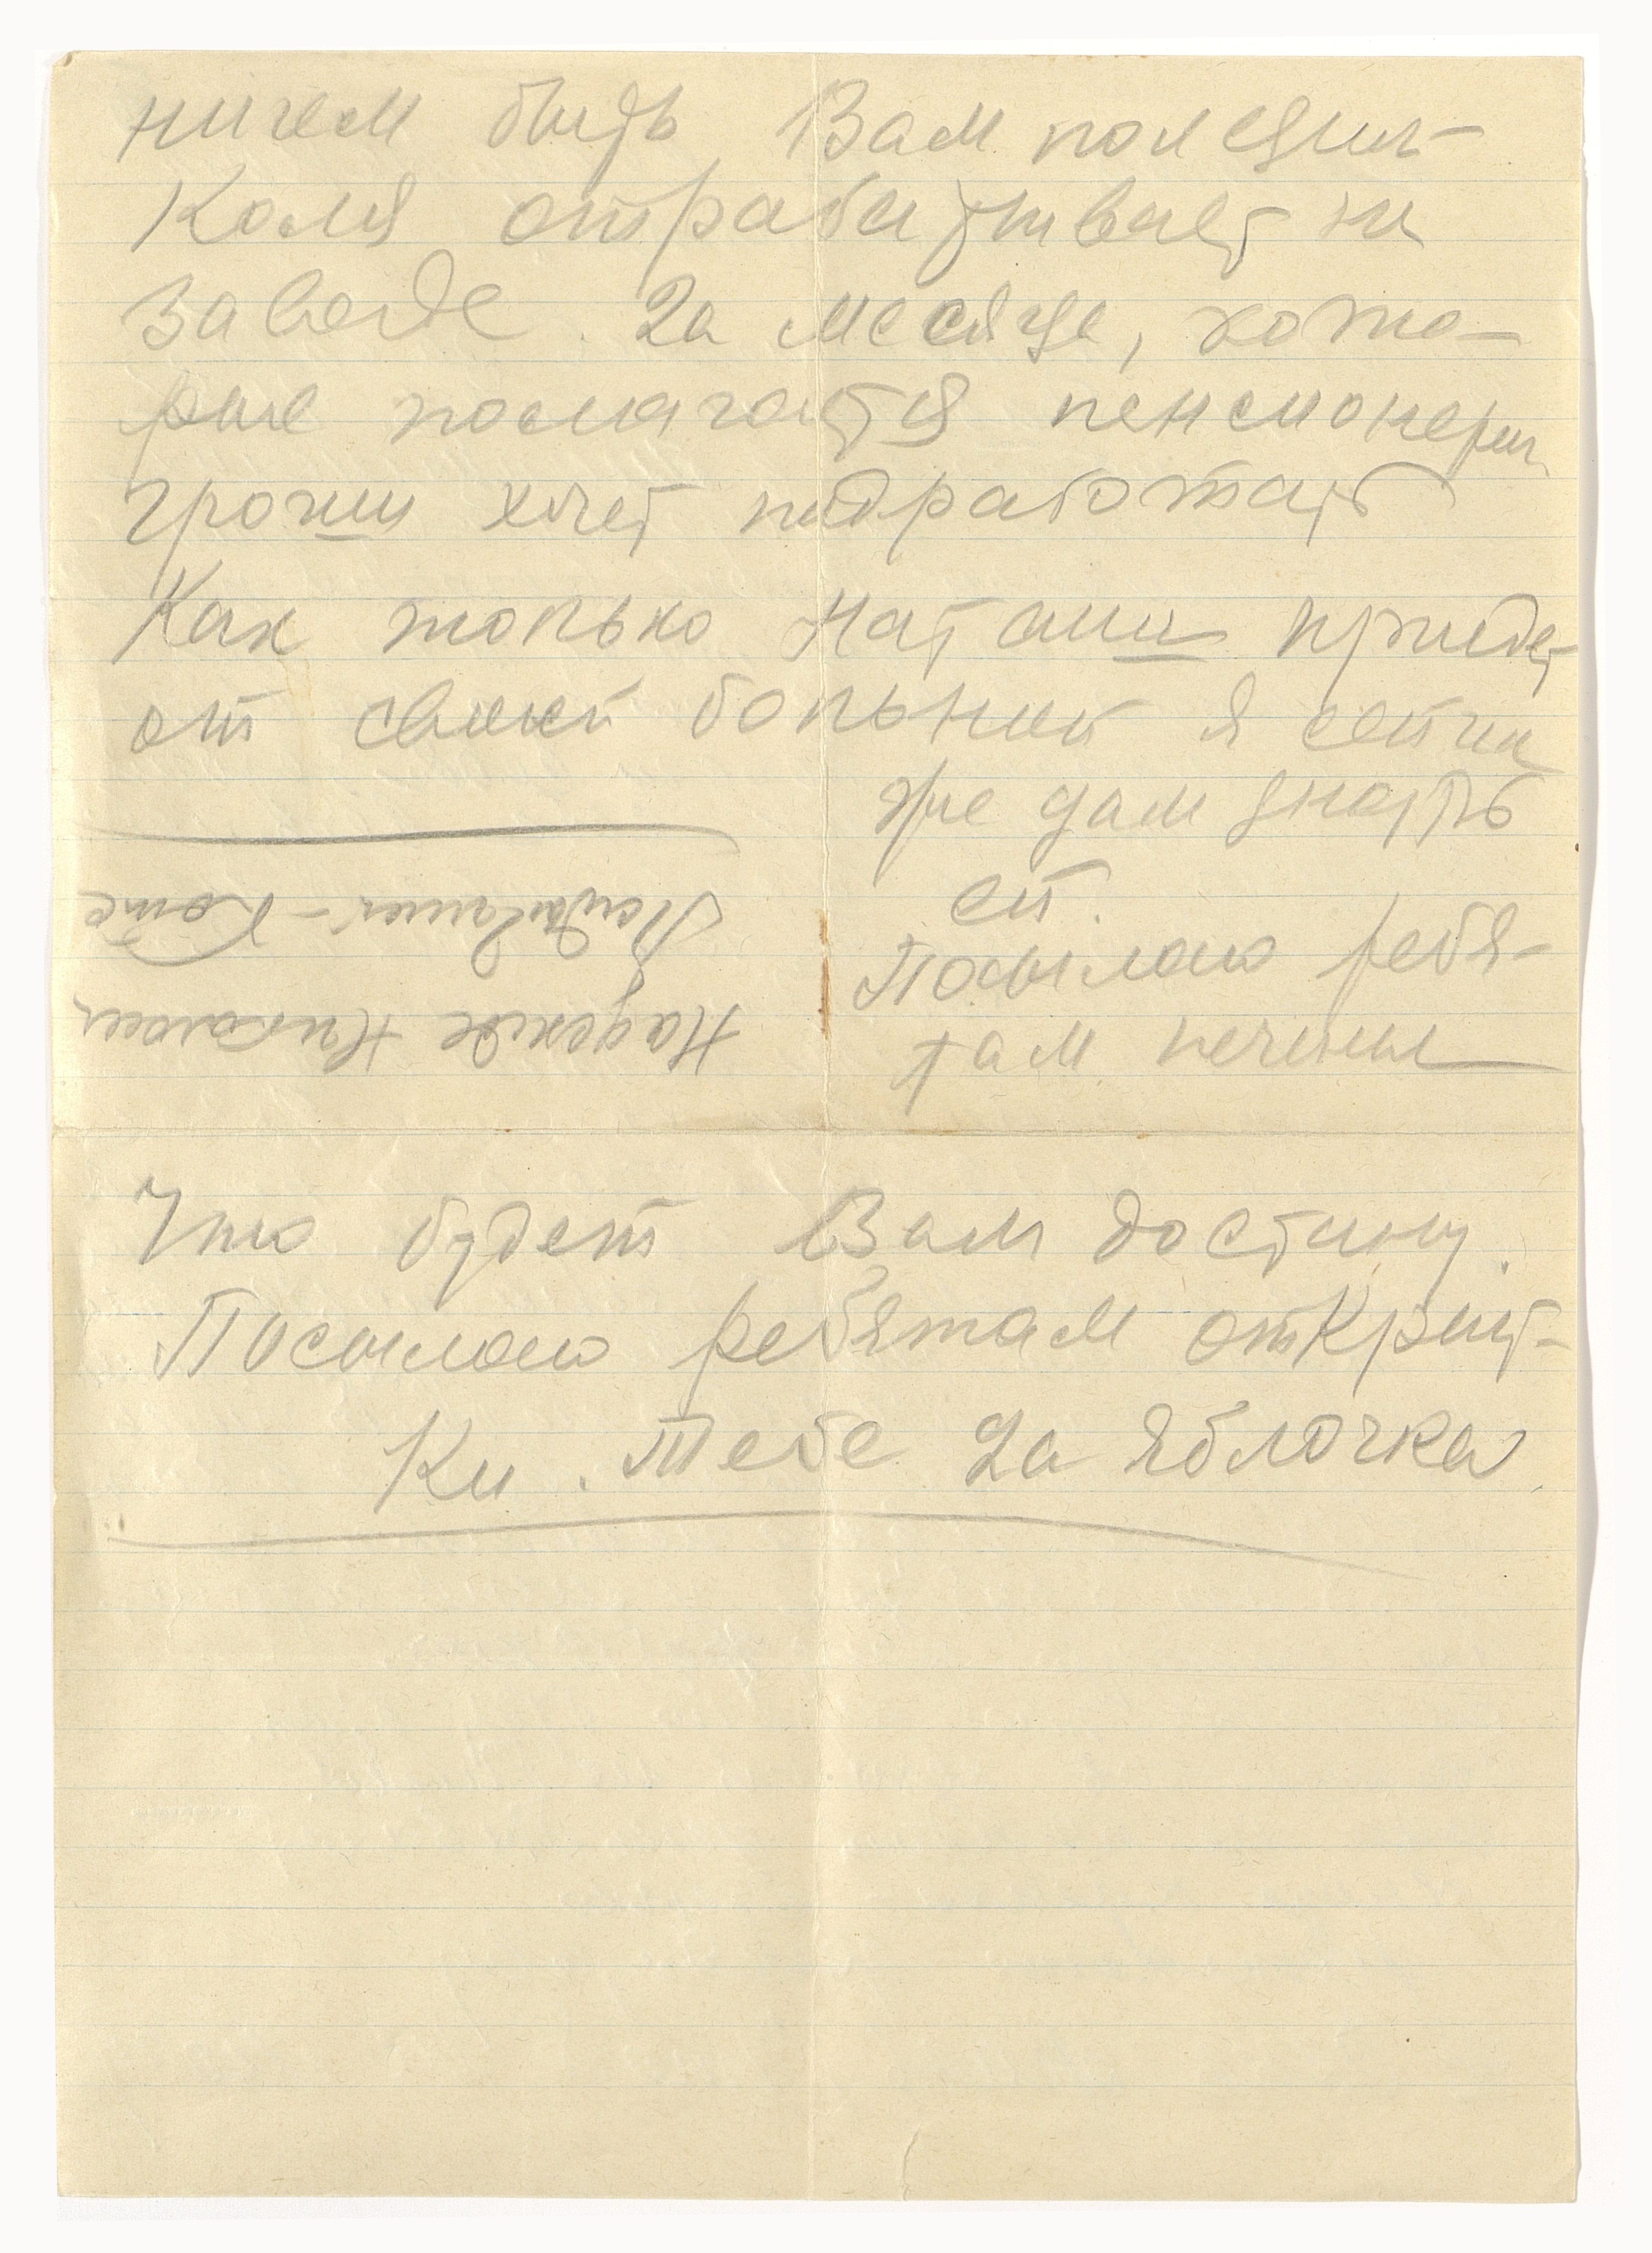 ничем быть Вам полезн-
Коля отрабатывает на
заводе. 2а месяца, кото-
рые полагается пенсионеру
гроши хочет подработать
Как только Наташа приедет
от своей больной я сейчас
же дам знать
ей.
Посылаю ребя-
там печенье
Надежде Николаевне
Кате
Что будет Вам достану.
Посылаю ребятам открыт-
ки. Тебе 2а яблочка